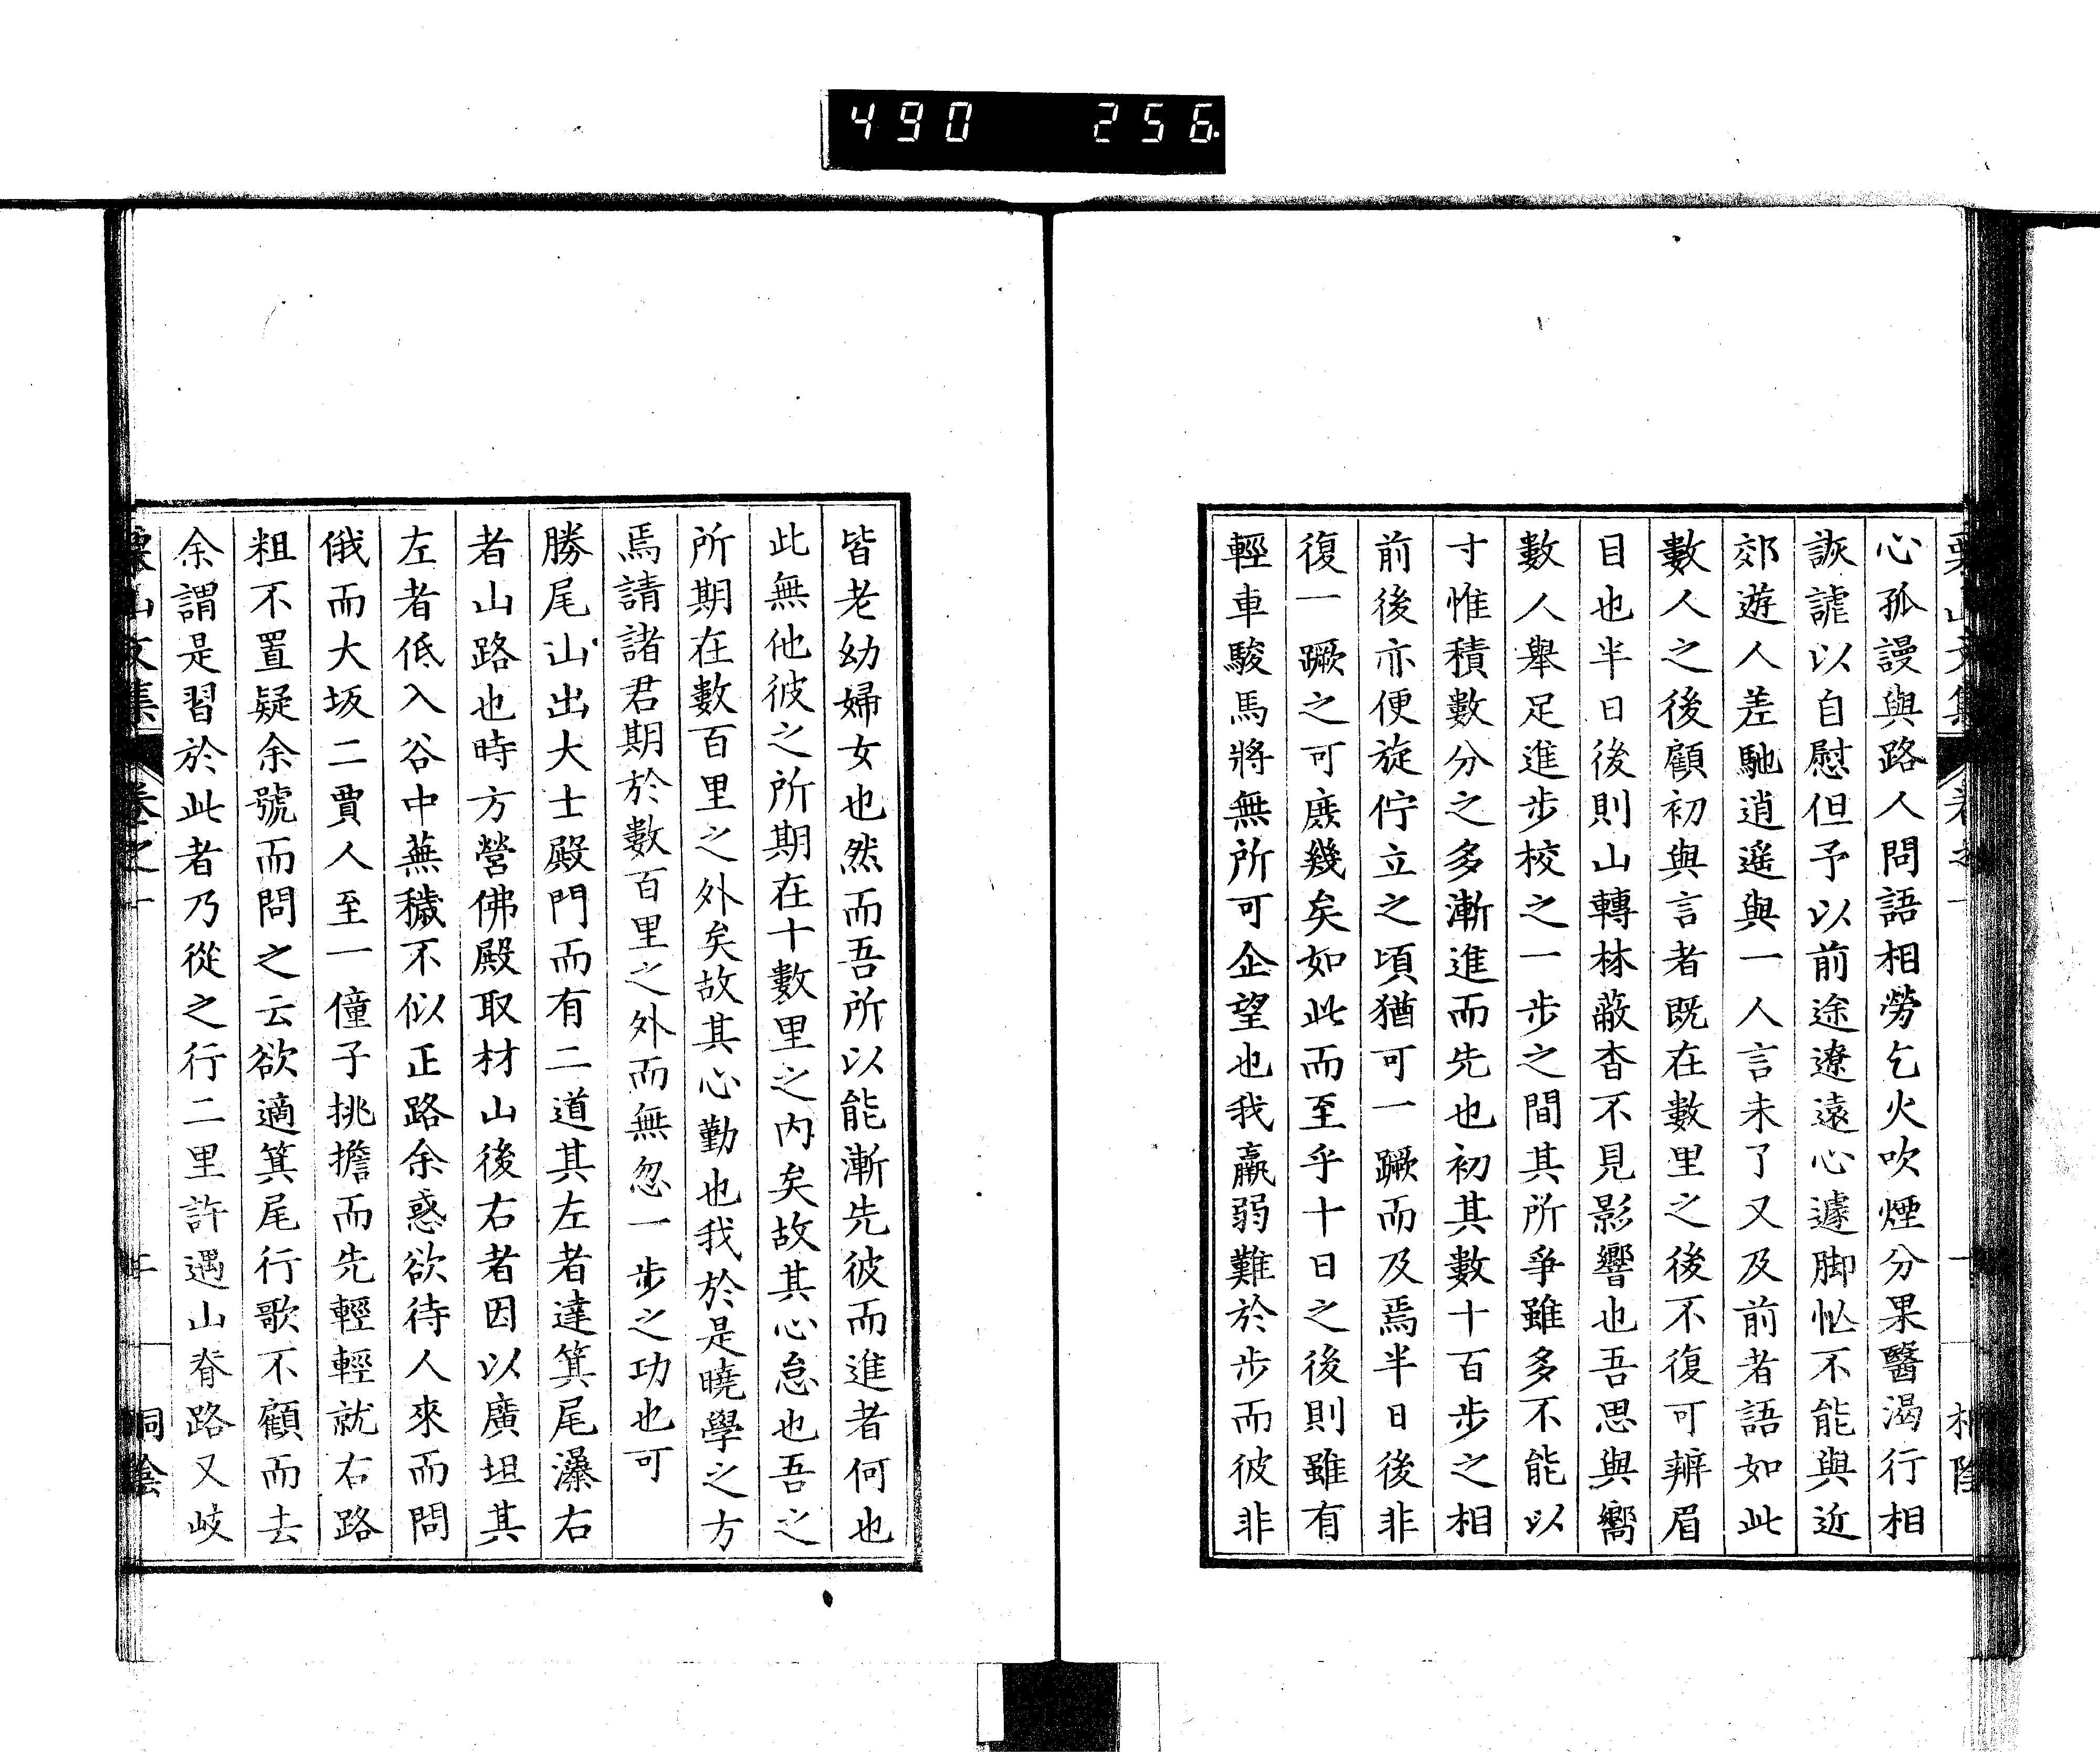 490 256
心孤謾與路人問語相勞乞火吹煙分果醫渴行相
詼謔以自慰但予以前途遼遠心遽脚忙不能與近
郊遊人差馳逍遙與一人言未了又及前者語如此
數人之後顧初與言者既在數里之後不復可辨眉
目也半日後則山轉林蔽杳不見影響也吾思與嚮
數人舉足進步校之一步之間其所爭雖多不能以
寸惟積數分之多漸進而先也初其數十百步之相
前後亦便旋佇立之頃猶可一蹶而及焉半日後非
復一蹶之可庶幾矣如此而至乎十日之後則雖有
輕車駿馬將無所可企望也我羸弱難於步而彼非
皆老幼婦女也然而吾所以能漸先彼而進者何也
此無他彼之所期在十數里之內矣故其心怠也吾之
所期在數百里之外矣故其心勤也我於是曉學之方
焉請諸君期於數百里之外而無忽一步之功也可
勝尾山出大士殿門而有二道其左者達箕尾瀑右
者山路也時方營佛殿取材山後右者因以廣坦其
左者低入谷中蕪穢不似正路余惑欲待人來而問
俄而大坂二賈人至一僮子挑擔而先輕輕就右路
粗不置疑余號而問之云欲適箕尾行歌不顧而去
余謂是習於此者乃從之行二里許遇山脊路又岐
山文集 卷之十 桐陰